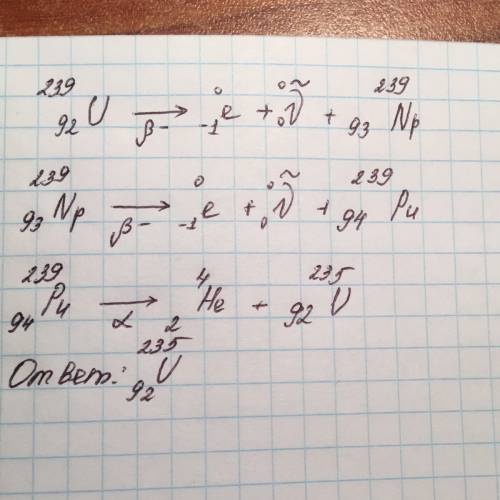 ²³⁹₉₂U →β⁻ ⁰₋₁e + ⁰₀ν̃ + ²³⁹₉₃Np
²³⁹₉₃Np →β⁻ ⁰₋₁e + ⁰₀ν̃ + ²³⁹₉₄Pu
²³⁹₉₄Pu →α ⁴₂He + ²³⁵₉₂U
Ответ: ²³⁵₉₂U